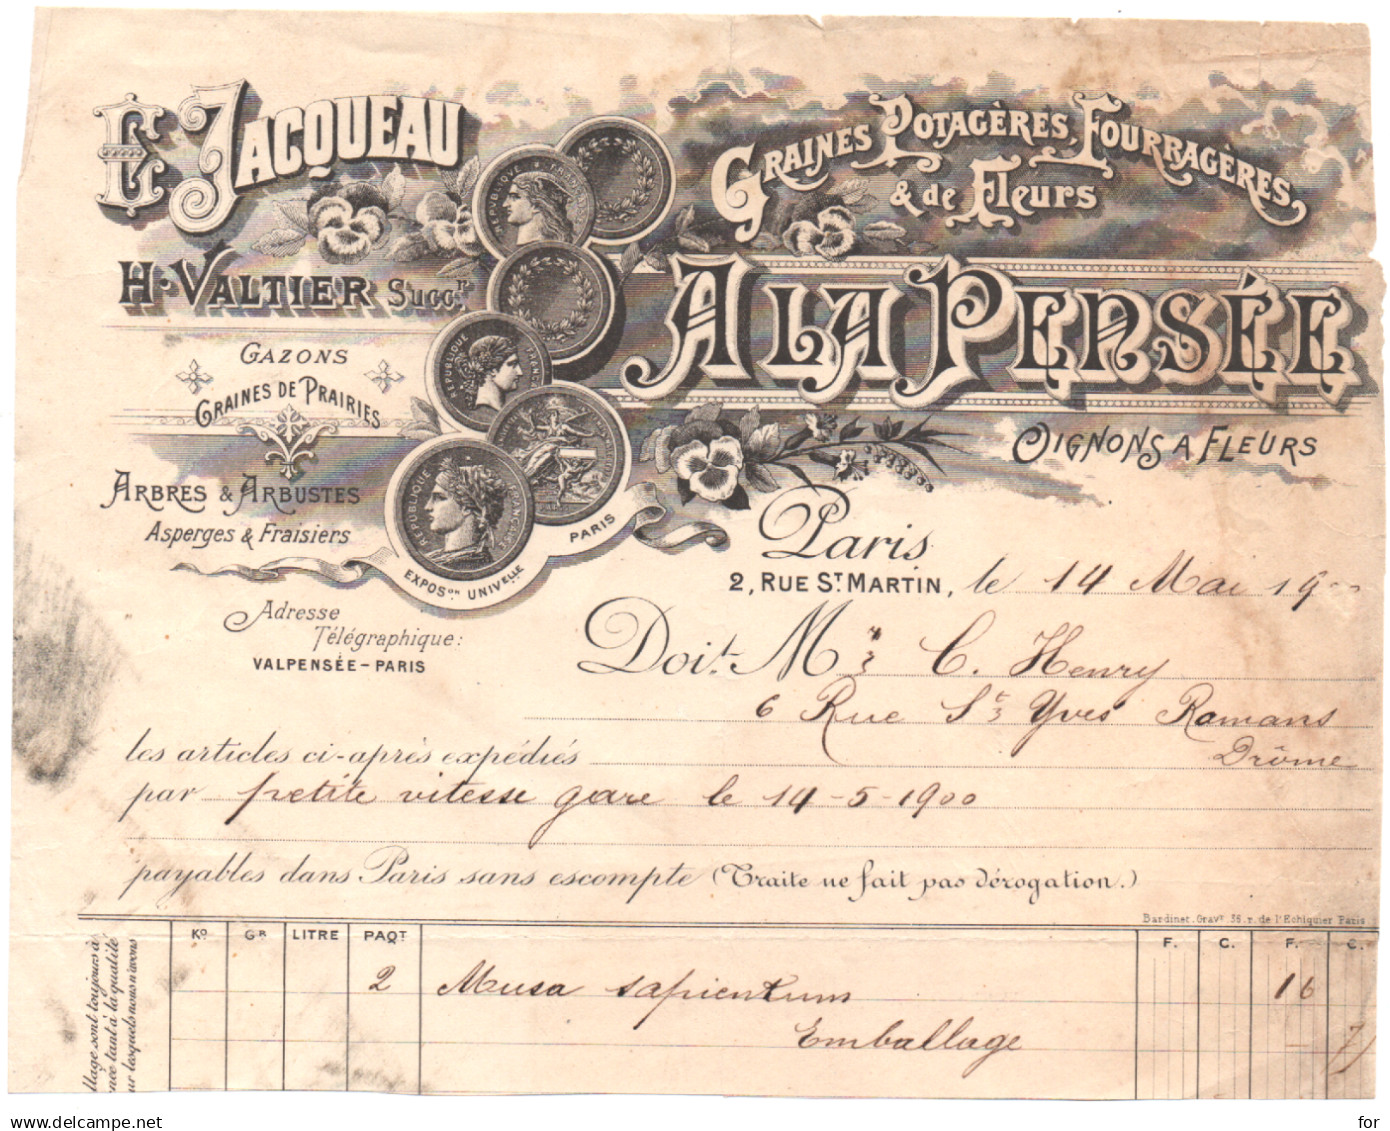 E. JACQUEAU
H. VALTIER Succr.
GAZONS
GRAINES DE PRAIRIES
ARBRES & ARBUSTES
Asperges & Fraisiers
Adresse
Télégraphique:
VALPENSÉE-PARIS
RÉPUBLIQUE FRANÇAISE
EXPOSon UNIVelle PARIS
GRAINES POTAGÈRES, FOURRAGÈRES,
& de Fleurs
A LA PENSÉE
OIGNONS A FLEURS
Paris
2, RUE ST. MARTIN, le 14 Mai 1900
Doit M r C. Henry
6 Rue St Yves Romans
Drôme
les articles ci-après expédiés
par petite vitesse gare le 14-5-1900
payables dans Paris sans escompte (Traite ne fait pas dérogation.)
Bardinet. Gravr. 36. r. de l'Echiquier Paris
Ko. GR. LITRE PAQT. F. C. F. C.
2 Musa sapientum 16
Emballage
llage sont toujours à
nce tant à la qualité
ur lesquels nous n'avons
www.delcampe.net
for